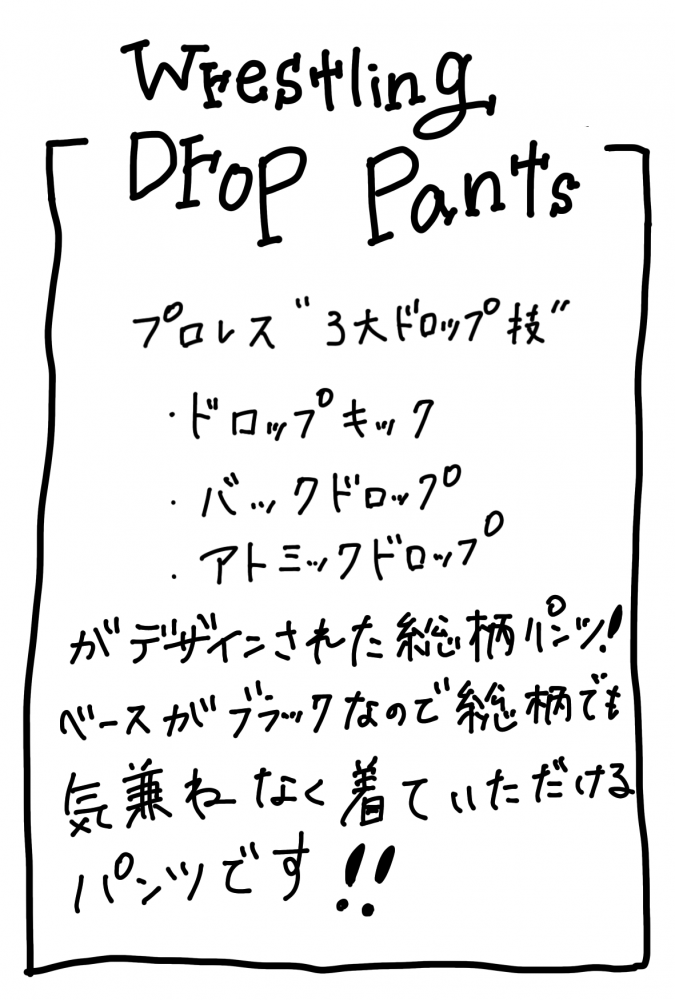 Wrestling
Drop Pants
プロレス“3大ドロップ技”
・ドロップキック
・バックドロップ
・アトミックドロップ
がデザインされた総柄パンツ!
ベースがブラックなので総柄でも
気兼ねなく着ていただける
パンツです!!